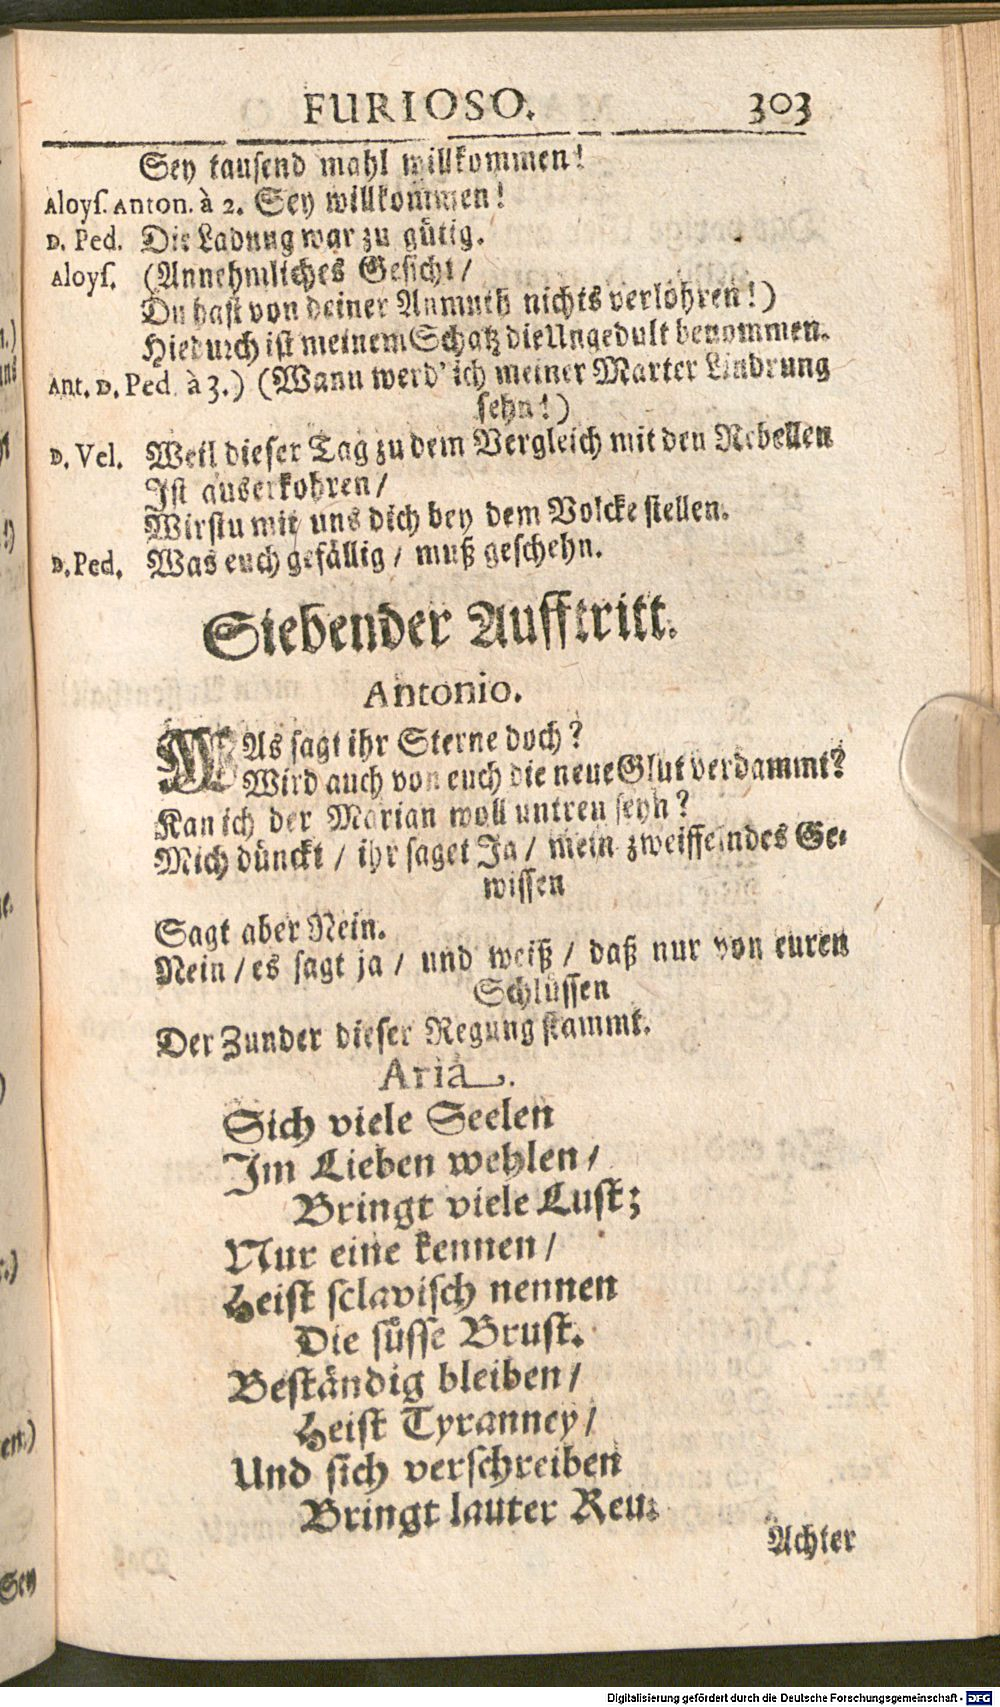 FURIOSO. 303
Sey tausend mahl willkommen!
Aloys. Anton. à 2. Sey willkommen!
D. Ped. Die Ladung war zu gütig.
Aloys. (Annehmliches Gesicht /
Du hast von deiner Anmuth nichts verlohren!)
Hiedurch ist meinem Schatz die Ungedult benommen.
Ant. D. Ped. à 3.) (Wann werd' ich meiner Marter Lindrung
sehn!)
D. Vel. Weil dieser Tag zu dem Vergleich mit den Rebellen
Ist auserkohren /
Wirstu mit uns dich bey dem Volcke stellen.
D. Ped. Was euch gefällig / muß geschehn.
Siebender Aufftritt.
Antonio.
WAs sagt ihr Sterne doch?
Wird auch von euch die neue Glut verdammt?
Kan ich der Marian woll untreu seyn?
Mich dünckt / ihr saget Ja / mein zweiffelndes Ge-
wissen
Sagt aber Nein.
Nein / es sagt ja / und weiß / daß nur von euren
Schlüssen
Der Zunder dieser Regung stammt.
Aria.
Sich viele Seelen
Im Lieben wehlen /
Bringt viele Lust;
Nur eine kennen /
Heist sclavisch nennen
Die süsse Brust.
Beständig bleiben /
Heist Tyranney /
Und sich verschreiben
Bringt lauter Reu.
Achter
Sey
Digitalisierung gefördert durch die Deutsche Forschungsgemeinschaft - DFG